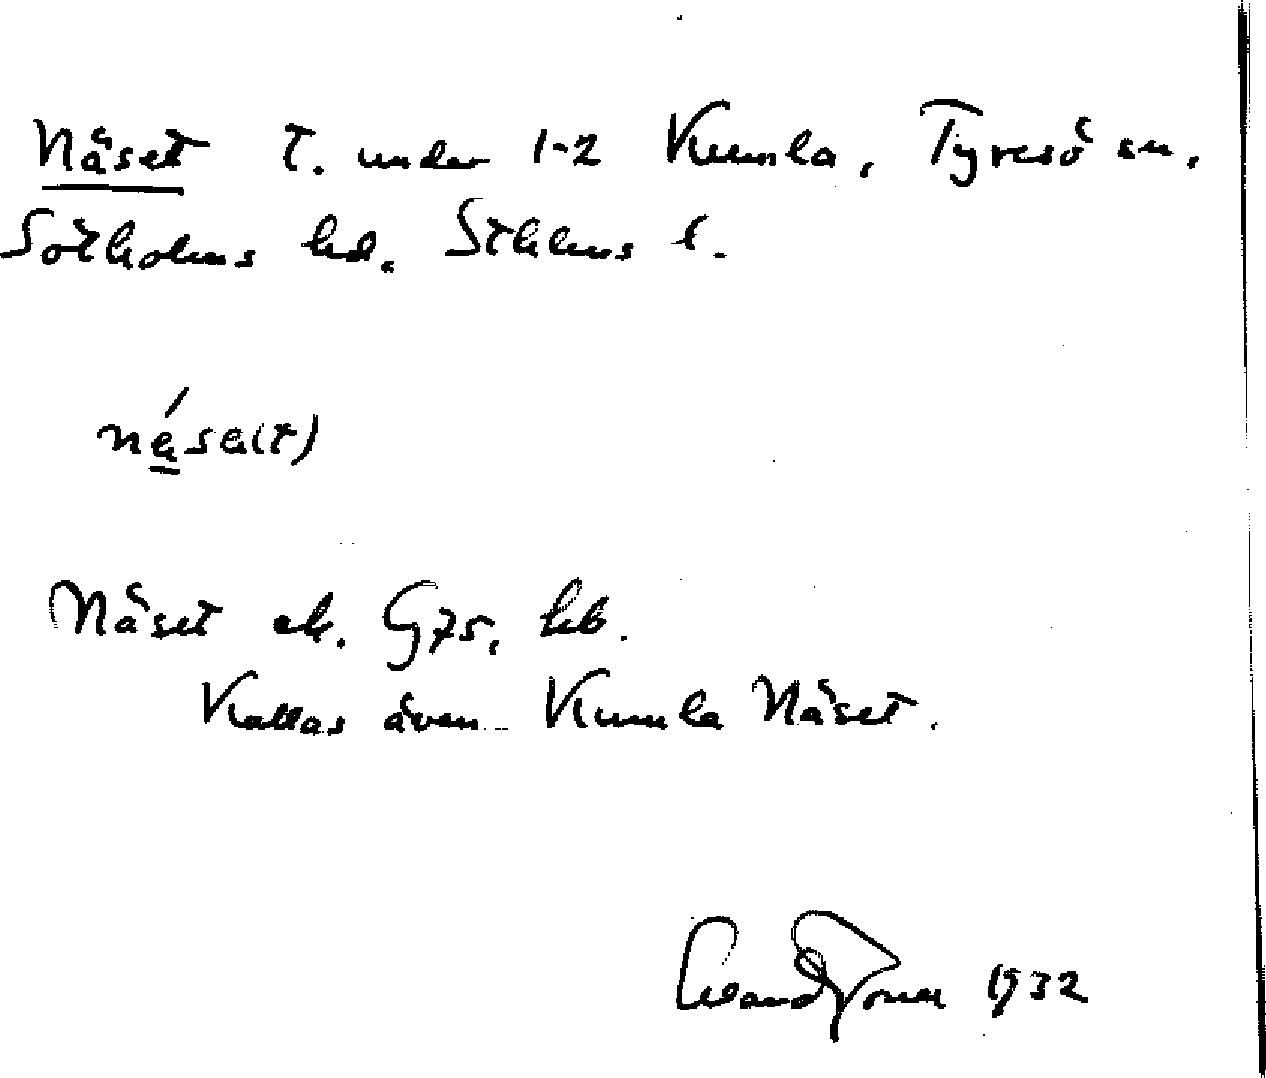 Näset t. under 1-2 Kumla, Tyresö sn,
Sotholms hd. Sthlms l.
näse(t)
Näset ek. G75, hb.
Kallas även Kumla Näset.
1932